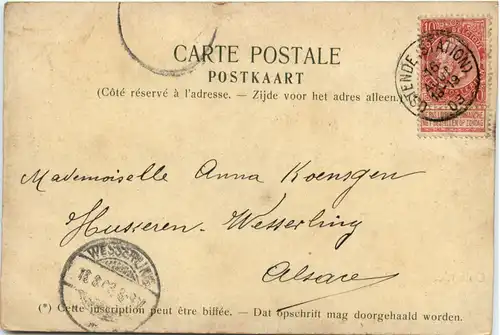 CARTE POSTALE
POSTKAART
(Côté réservé à l'adresse. — Zijde voor het adres alleen.)
OSTENDE (STATION)
10
Mademoiselle Anna Koensgen
Husseren-Wesserling
Alsace
WESSERLING
(*) Cette inscription peut être biffée. — Dat opschrift mag doorgehaald worden.